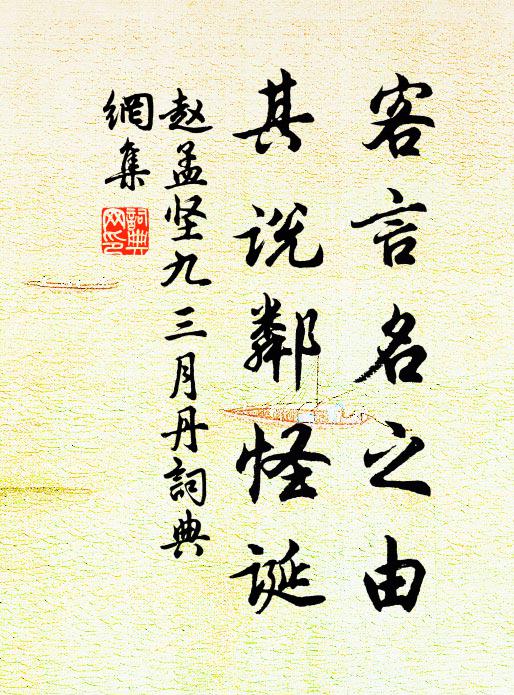 客言名之由
其说鄰怪诞
赵孟坚九三月丹詞典
網集
詞典网印